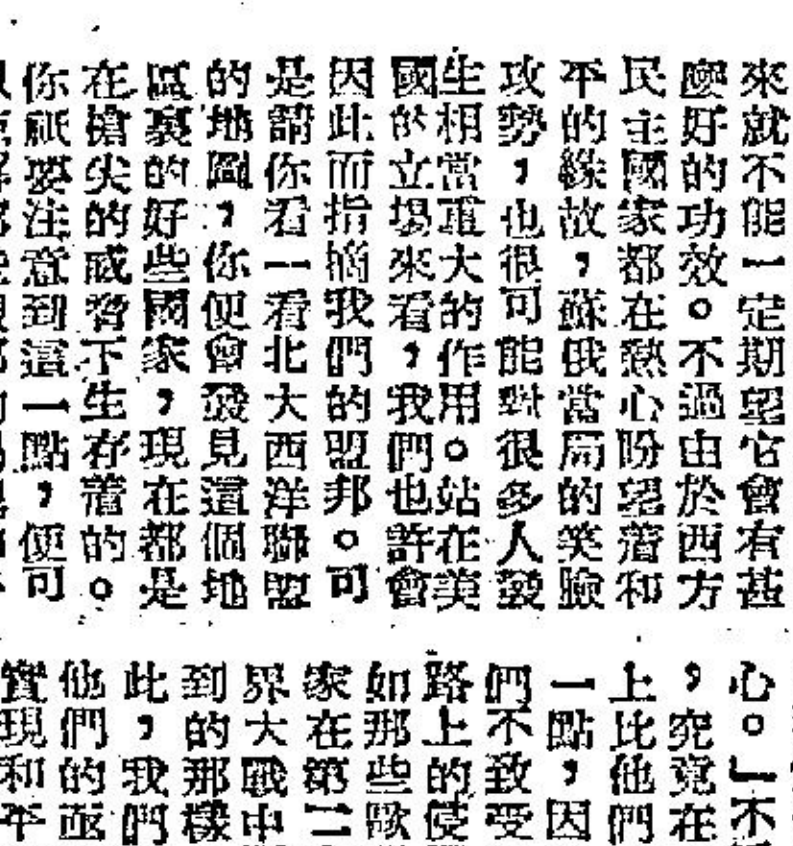 來就不能一定期望它會有甚
麼好的功效。不過由於西方
民主國家都在熱心盼望着和
平的緣故，蘇俄當局的笑臉
攻勢，也很可能對很多人發
生相當重大的作用。站在美
國的立場來看，我們也許會
因此而指摘我們的盟邦。可
是請你看一看北大西洋聯盟
的地圖，你便會發見這個地
區裏的好些國家，現在都是
在槍尖的威脅下生存着的。
你祇要注意到這一點，便可
心。」不
，究竟在
上比他們
一點，因
們不致受
路上的使
如那些歐
家在第二
界大戰中
到的那樣
此，我們
他們的
實現和平